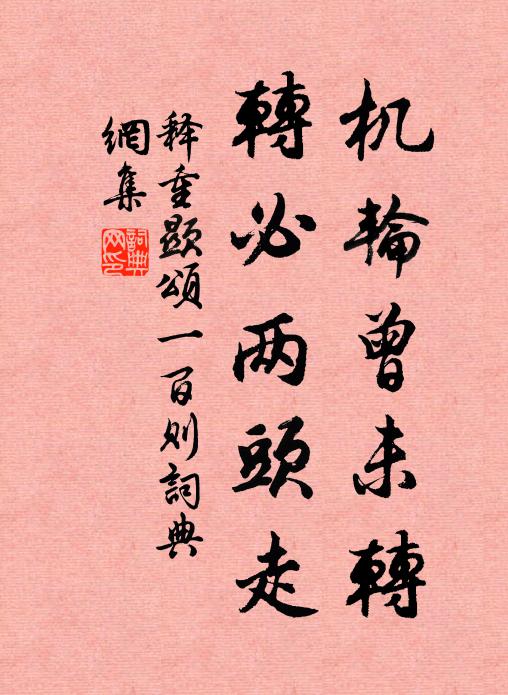 机輪曾未轉
轉必两頭走
释重顯頌一百则詞典
網集
詞典網印